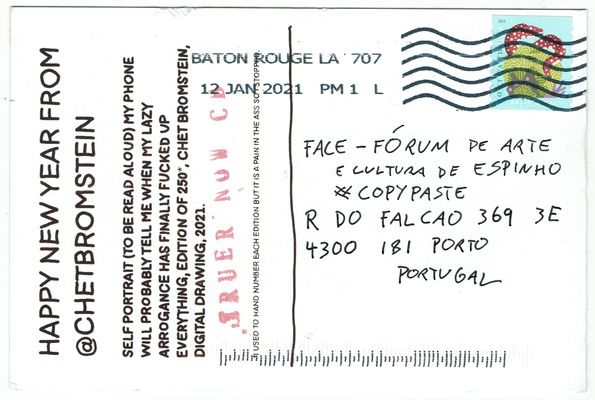 HAPPY NEW YEAR FROM
@CHETBROMSTEIN
SELF PORTRAIT (TO BE READ ALOUD) MY PHONE
WILL PROBABLY TELL ME WHEN MY LAZY
ARROGANCE HAS FINALLY FUCKED UP
EVERYTHING, EDITION OF 250*, CHET BROMSTEIN,
DIGITAL DRAWING, 2021.
TRUER NOW
USED TO HAND NUMBER EACH EDITION BUT IT IS A PAIN IN THE ASS SO I STOPPED.
BATON ROUGE LA 707
12 JAN 2021 PM 1 L
FACE - FÓRUM DE ARTE
E CULTURA DE ESPINHO
# COPYPASTE
R DO FALCAO 369 3E
4300 181 PORTO
PORTUGAL